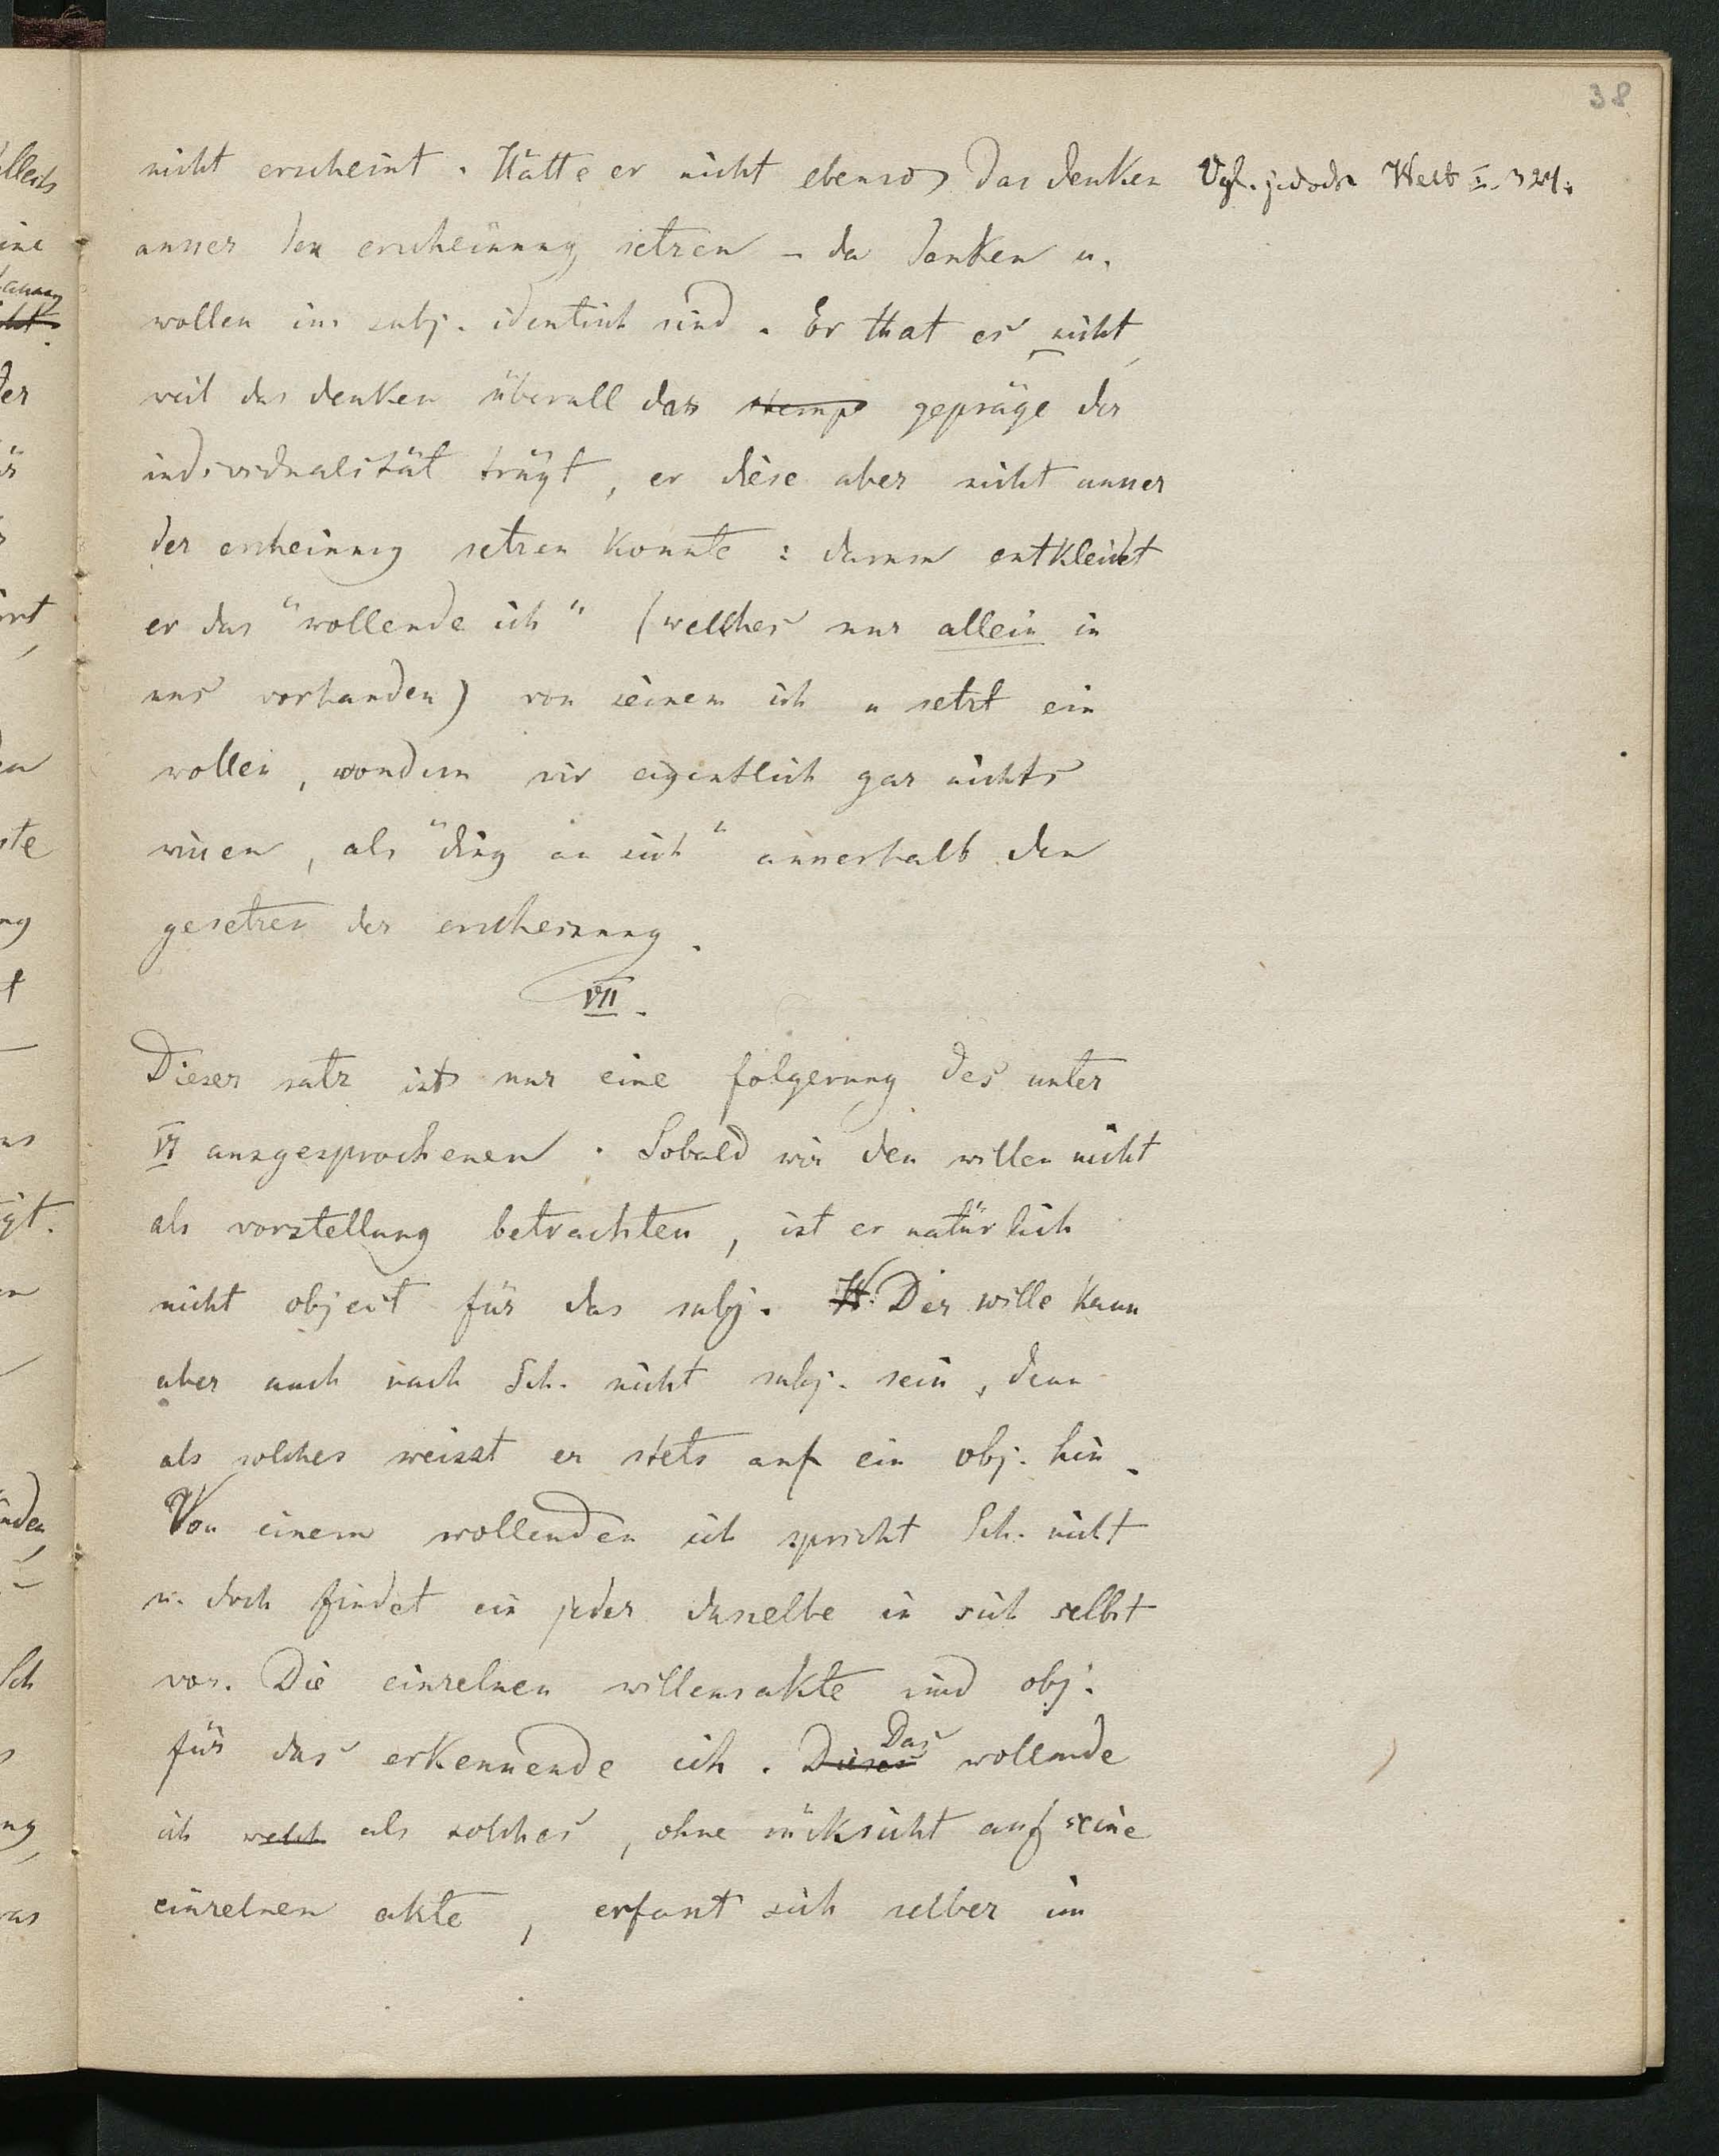 38
nicht erscheint. Hätte er nicht ebenso das denken
ausser der erscheinung setzen – da denken u.
wollen ins subj. identisch sind. Er that es nicht,
weil das denken überall das stemp gepräge der
individualität trägt, er diese aber nicht ausser
der erscheinung setzen konnte: darum entkleidet
er das "wollende ich" (welches nur allein in
uns vorhanden) von seinem ich u setzt ein
wollen, wondurn wir eigentlich gar nichts
wissen, als "ding an sich" ausserhalb den
gesetzen der erscheinung.
VII.
Dieser satz ist nur eine folgerung des unter
VI ausgesprochenen. Sobald wir den willen nicht
als vorstellung betrachten, ist er natürlich
nicht object für das subj. W. Der wille kann
aber auch nach Sch. nicht subj. sein, denn
als solches weisst er stets auf ein obj. hin.
Von einem wollenden ich spricht Sch. nicht
u. doch findet ein jeder dasselbe in sich selbst
vor. Die einzelnen willensakte sind obj.
für das erkennende ich. Dieses Das wollende
ich welch als solches, ohne rücksicht auf seine
einzelnen akte, erfasst sich selber im
Vgl. jedoch Welt I. 327.